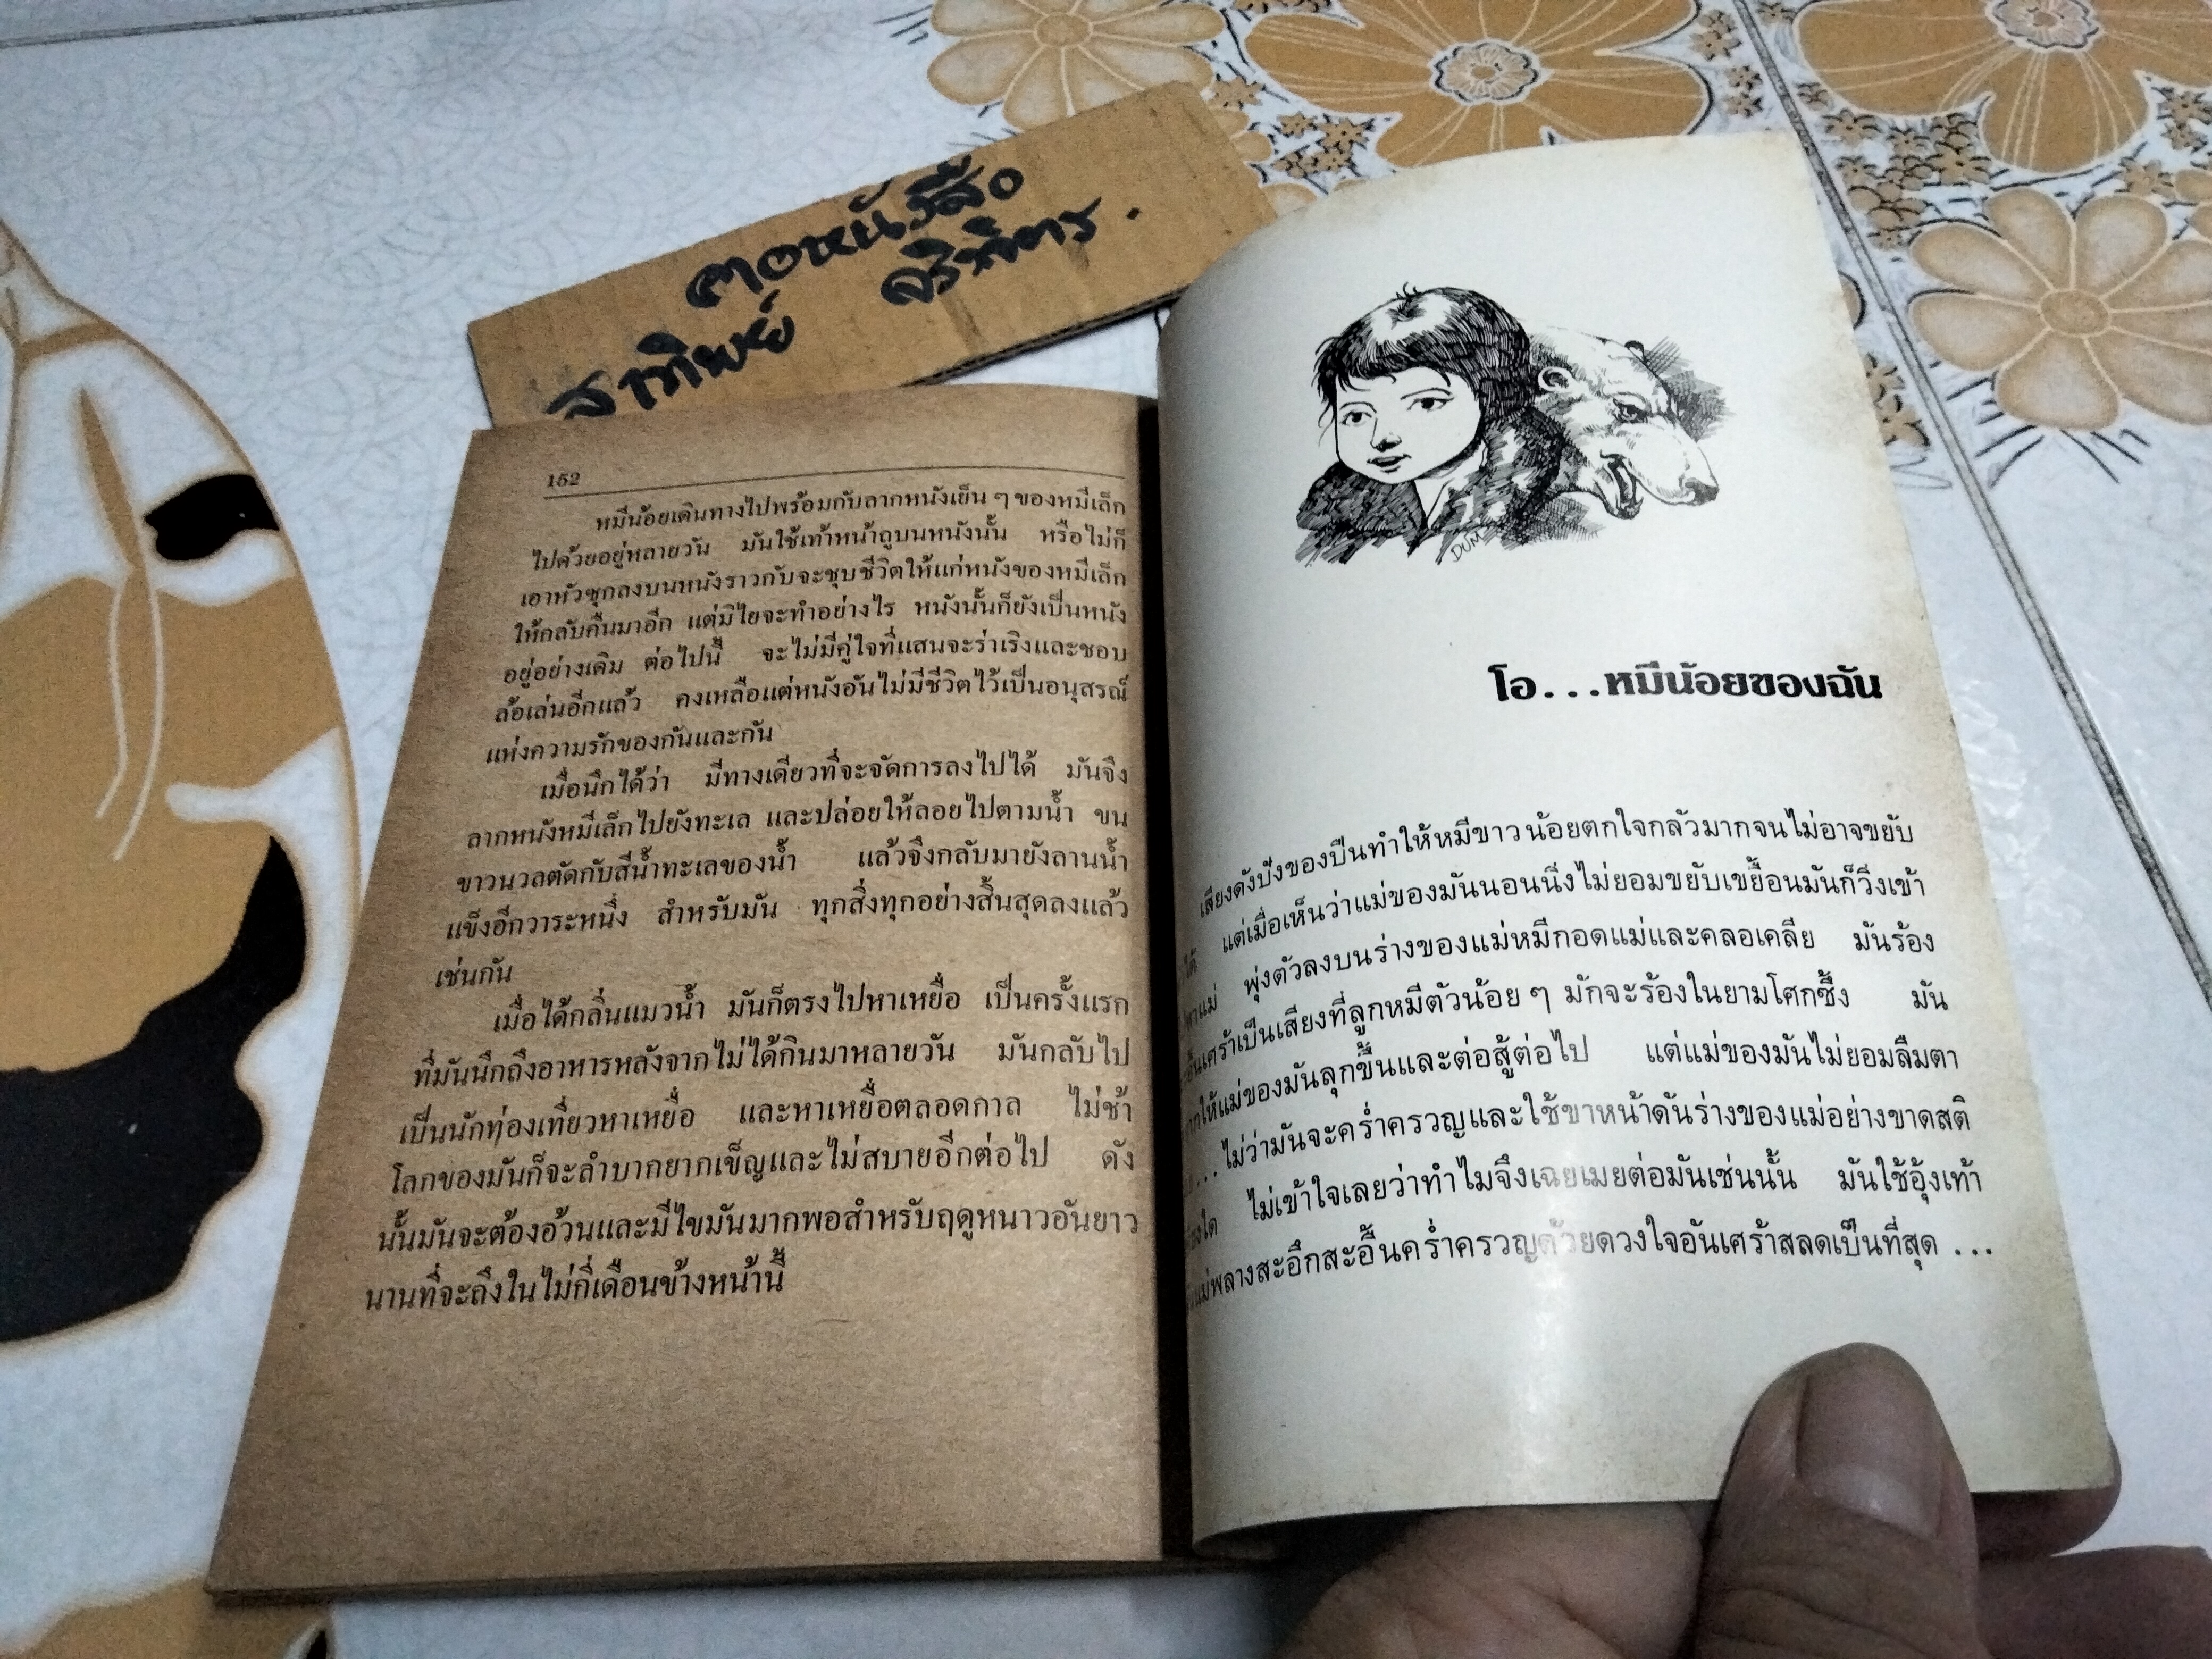 คอหนังสือ
สาทิพย์ ศริพิตร.
152
หมีน้อยเดินทางไปพร้อมกับลากหนังเย็น ๆ ของหมีเล็ก
ไปด้วยอยู่หลายวัน มันใช้เท้าหน้าถูบนหนังนั้น หรือไม่ก็
เอาหัวซุกลงบนหนังราวกับจะชุบชีวิตให้แก่หนังของหมีเล็ก
ให้กลับคืนมาอีก แต่มิไยจะทำอย่างไร หนังนั้นก็ยังเป็นหนัง
อยู่อย่างเดิม ต่อไปนี้ จะไม่มีคู่ใจที่แสนจะร่าเริงและชอบ
ล้อเล่นอีกแล้ว คงเหลือแต่หนังอันไม่มีชีวิตไว้เป็นอนุสรณ์
แห่งความรักของกันและกัน
เมื่อนึกได้ว่า มีทางเดียวที่จะจัดการลงไปได้ มันจึง
ลากหนังหมีเล็กไปยังทะเล และปล่อยให้ลอยไปตามน้ำ ขน
ขาวนวลตัดกับสีน้ำทะเลของน้ำ แล้วจึงกลับมายังลานน้ำ
แข็งอีกวาระหนึ่ง สำหรับมัน ทุกสิ่งทุกอย่างสิ้นสุดลงแล้ว
เช่นกัน
เมื่อได้กลิ่นแมวน้ำ มันก็ตรงไปหาเหยื่อ เป็นครั้งแรก
ที่มันนึกถึงอาหารหลังจากไม่ได้กินมาหลายวัน มันกลับไป
เป็นนักท่องเที่ยวหาเหยื่อ และหาเหยื่อตลอดกาล ไม่ช้า
โลกของมันก็จะลำบากยากเข็ญและไม่สบายอีกต่อไป ดัง
นั้นมันจะต้องอ้วนและมีไขมันมากพอสำหรับฤดูหนาวอันยาว
นานที่จะถึงในไม่กี่เดือนข้างหน้านี้
DUM
โอ...หมีน้อยของฉัน
เสียงดังปังของปืนทำให้หมีขาวน้อยตกใจกลัวมากจนไม่อาจขยับ
ได้ แต่เมื่อเห็นว่าแม่ของมันนอนนิ่งไม่ยอมขยับเขยื้อนมันก็วิ่งเข้า
แม่ พุ่งตัวลงบนร่างของแม่หมีกอดแม่และคลอเคลีย มันร้อง
เศร้าเป็นเสียงที่ลูกหมีตัวน้อย ๆ มักจะร้องในยามโศกซึ้ง มัน
ให้แม่ของมันลุกขึ้นและต่อสู้ต่อไป แต่แม่ของมันไม่ยอมลืมตา
...ไม่ว่ามันจะคร่ำครวญและใช้ขาหน้าดันร่างของแม่อย่างขาดสติ
ใด ไม่เข้าใจเลยว่าทำไมจึงเฉยเมยต่อมันเช่นนั้น มันใช้อุ้งเท้า
แม่พลางสะอึกสะอื้นคร่ำครวญด้วยดวงใจอันเศร้าสลดเป็นที่สุด ...